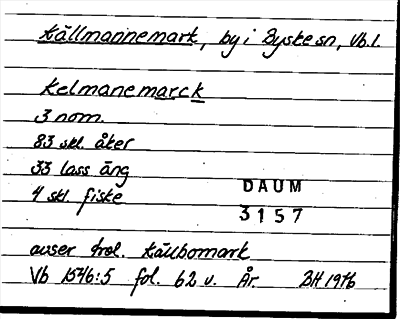 Källmannemark, by i Byske sn, Vb.l.
Kelmanemarck
3 nom.
83 skl. åker
33 lass äng
4 skl. fiske
DAUM
3157
avser trol. Källbomark
Vb 1546:5 fol. 62 v. År. BH 1976